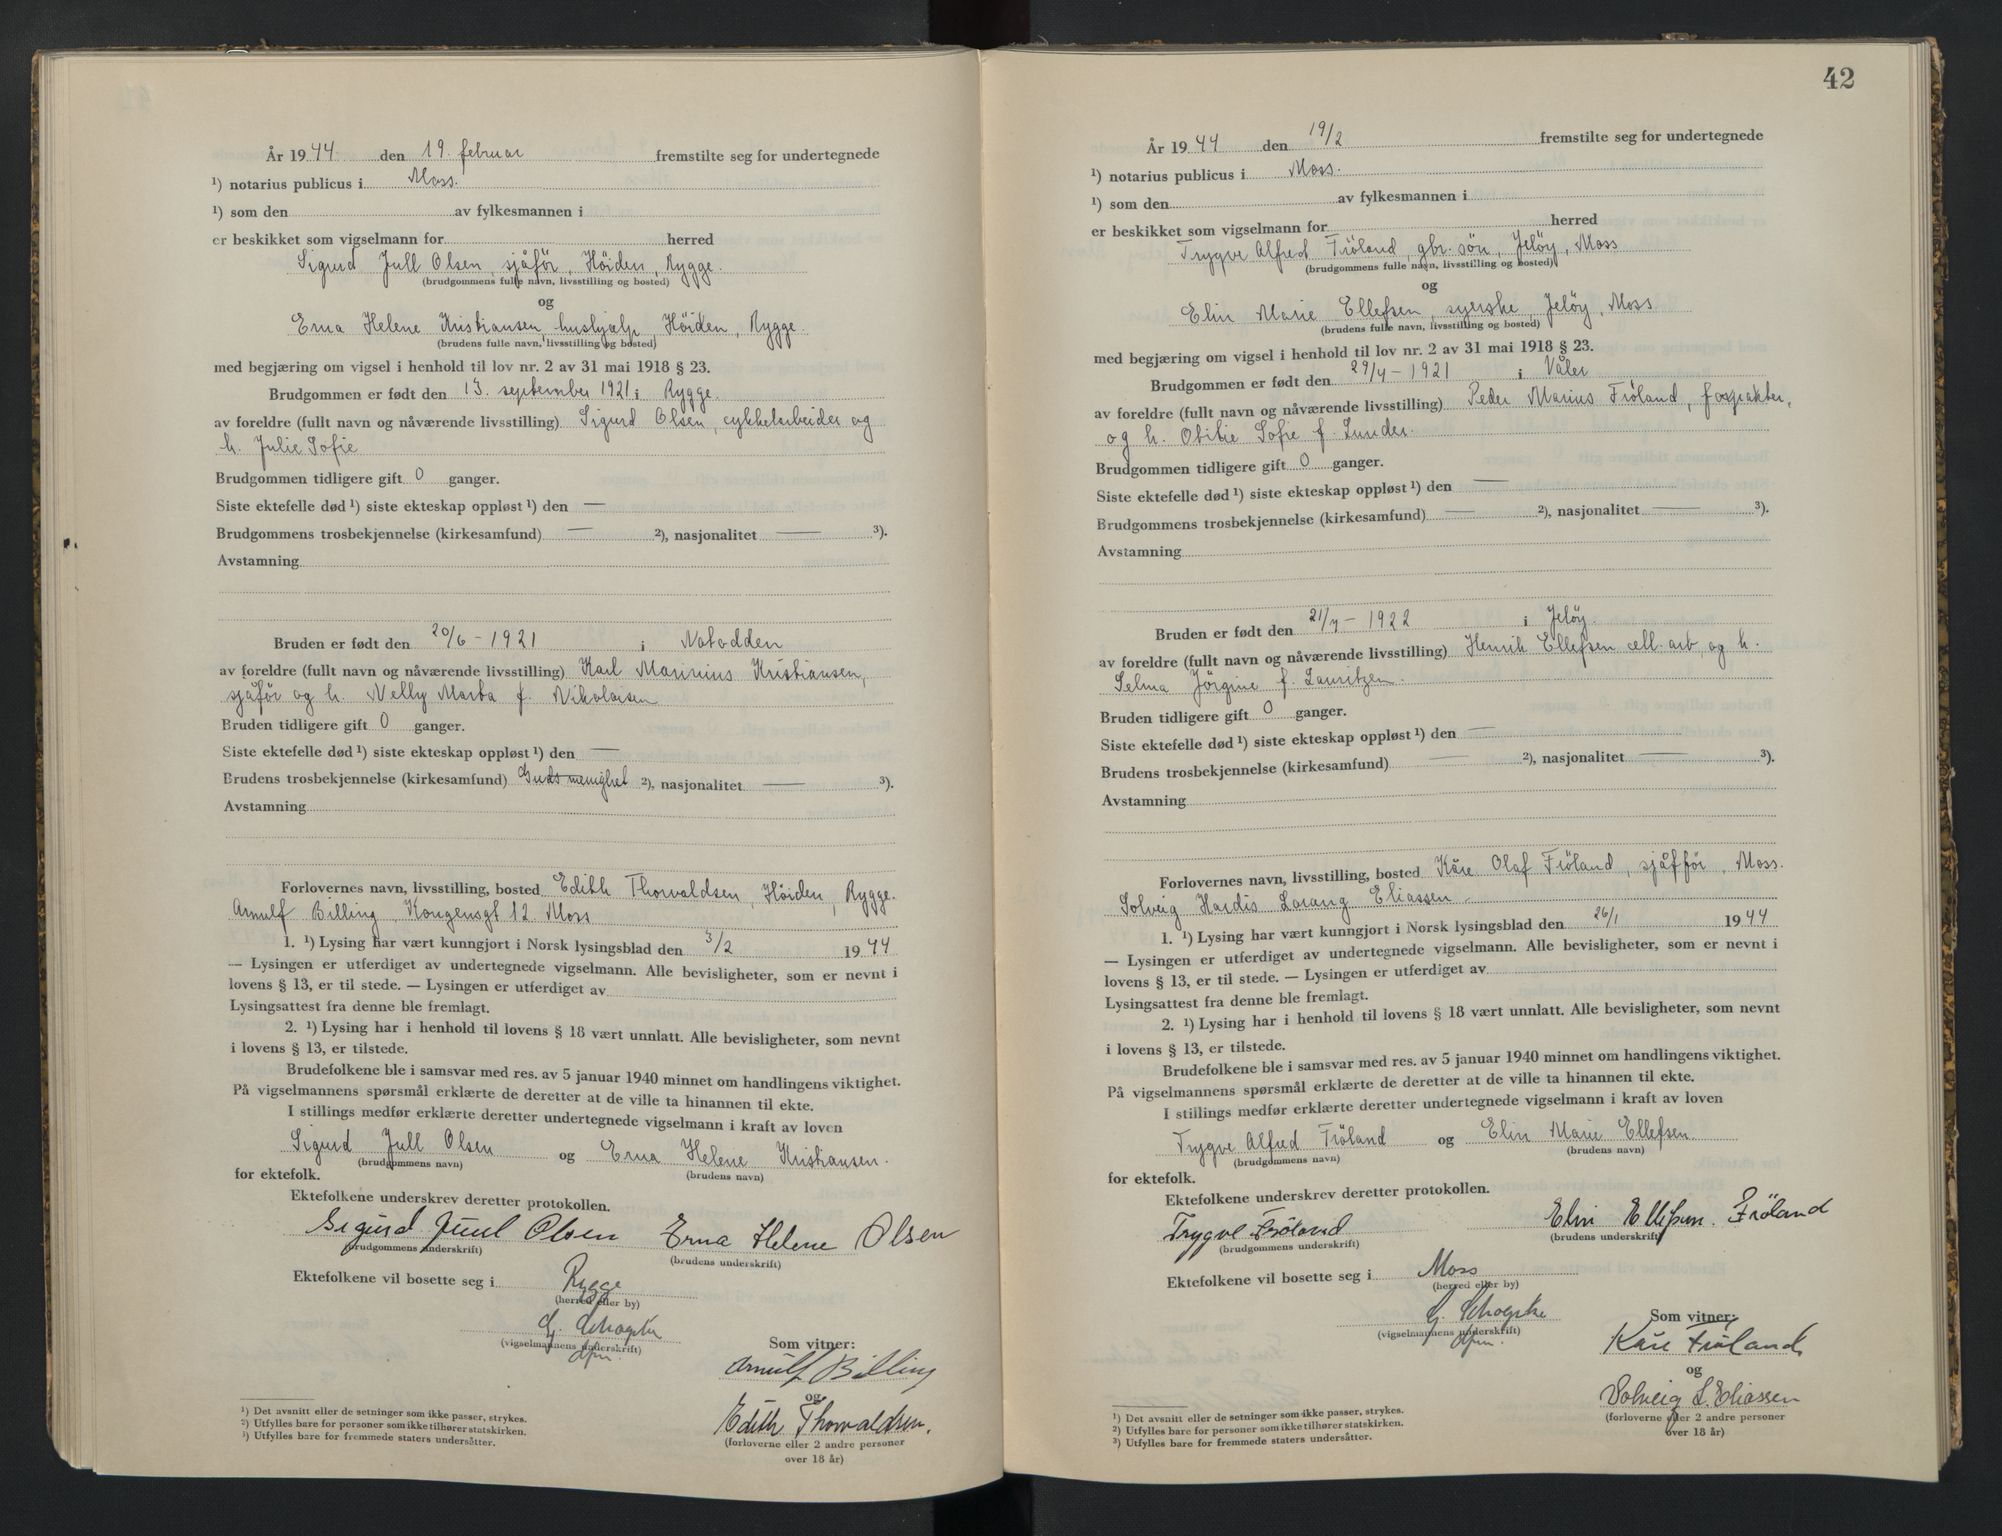 År 1944 den 19. februar fremstilte seg for undertegnede
¹) notarius publicus i Moss.
¹) som den av fylkesmannen i
er beskikket som vigselmann for herred
Sigurd Jull Olsen, sjåför, Höiden, Rygge.
(brudgommens fulle navn, livsstilling og bosted)
og
Erna Helene Kristiansen, hushjælp, Höiden, Rygge.
(brudens fulle navn, livsstilling og bosted)
med begjæring om vigsel i henhold til lov nr. 2 av 31 mai 1918 § 23.
Brudgommen er født den 13. september 1921 i Rygge.
av foreldre (fullt navn og nåværende livsstilling) Sigurd Olsen, cykkelarbeider og
h. Julie Sofie
Brudgommen tidligere gift 0 ganger.
Siste ektefelle død ¹) siste ekteskap oppløst ¹) den —
Brudgommens trosbekjennelse (kirkesamfund) — ²), nasjonalitet — ³).
Avstamning
Bruden er født den 20/6 - 1921 i Notodden
av foreldre (fullt navn og nåværende livsstilling) Karl Marinius Kristiansen,
sjåför og h. Nelly Marta f. Nikolaisen
Bruden tidligere gift 0 ganger.
Siste ektefelle død ¹) siste ekteskap oppløst ¹) den —
Brudens trosbekjennelse (kirkesamfund) Guds menighet ²), nasjonalitet — ³).
Avstamning
Forlovernes navn, livsstilling, bosted Edith Thorvaldsen, Höiden, Rygge.
Arnulf Billing, Kongensgt 12. Moss
1. ¹) Lysing har vært kunngjort i Norsk lysingsblad den 3/2 1944
— Lysingen er utferdiget av undertegnede vigselmann. Alle bevisligheter, som er nevnt i
lovens § 13, er til stede. — Lysingen er utferdiget av
Lysingsattest fra denne ble fremlagt.
2. ¹) Lysing har i henhold til lovens § 18 vært unnlatt. Alle bevisligheter, som nevnt
i lovens § 13, er tilstede.
Brudefolkene ble i samsvar med res. av 5 januar 1940 minnet om handlingens viktighet.
På vigselmannens spørsmål erklærte de deretter at de ville ta hinannen til ekte.
I stillings medfør erklærte deretter undertegnede vigselmann i kraft av loven
Sigurd Jull Olsen og Erna Helene Kristiansen.
(brudgommens navn) (brudens navn)
for ektefolk.
Ektefolkene underskrev deretter protokollen.
Sigurd Juul Olsen Erna Helene Olsen
(brudgommens underskrift) (brudens underskrift)
Ektefolkene vil bosette seg i Rygge
(herred eller by)
(vigselmannens underskrift)
Som vitner:
Arnulf Billing
og
Edith Thorvaldsen.
(forloverne eller 2 andre personer
over 18 år)
¹) Det avsnitt eller de setninger som ikke passer, strykes.
²) Utfylles bare for personer som ikke tilhører statskirken.
³) Utfylles bare for fremmede staters undersåtter.
42
År 1944 den 19/2 fremstilte seg for undertegnede
¹) notarius publicus i Moss.
¹) som den av fylkesmannen i
er beskikket som vigselmann for herred
Trygve Alfred Fröland, gbr. sön, Jelöy, Moss
(brudgommens fulle navn, livsstilling og bosted)
og
Elin Marie Ellefsen, syerske, Jelöy, Moss
(brudens fulle navn, livsstilling og bosted)
med begjæring om vigsel i henhold til lov nr. 2 av 31 mai 1918 § 23.
Brudgommen er født den 29/4 - 1921 i Våler
av foreldre (fullt navn og nåværende livsstilling) Peder Marius Fröland, forpakter,
og h. Otilie Sofie f. Lunder.
Brudgommen tidligere gift 0 ganger.
Siste ektefelle død ¹) siste ekteskap oppløst ¹) den —
Brudgommens trosbekjennelse (kirkesamfund) — ²), nasjonalitet — ³).
Avstamning
Bruden er født den 21/7 - 1922 i Jelöy.
av foreldre (fullt navn og nåværende livsstilling) Henrik Ellefsen cell. arb. og h.
Selma Jörgine f. Lauritzen.
Bruden tidligere gift 0 ganger.
Siste ektefelle død ¹) siste ekteskap oppløst ¹) den —
Brudens trosbekjennelse (kirkesamfund) — ²), nasjonalitet — ³).
Avstamning
Forlovernes navn, livsstilling, bosted Kåre Olaf Fröland, sjåfför, Moss.
Solveig Hardis Lorang Eliassen -
1. ¹) Lysing har vært kunngjort i Norsk lysingsblad den 26/1 1944
— Lysingen er utferdiget av undertegnede vigselmann. Alle bevisligheter, som er nevnt i
lovens § 13, er til stede. — Lysingen er utferdiget av
Lysingsattest fra denne ble fremlagt.
2. ¹) Lysing har i henhold til lovens § 18 vært unnlatt. Alle bevisligheter, som nevnt
i lovens § 13, er tilstede.
Brudefolkene ble i samsvar med res. av 5 januar 1940 minnet om handlingens viktighet.
På vigselmannens spørsmål erklærte de deretter at de ville ta hinannen til ekte.
I stillings medfør erklærte deretter undertegnede vigselmann i kraft av loven
Trygve Alfred Fröland og Elin Marie Ellefsen
(brudgommens navn) (brudens navn)
for ektefolk.
Ektefolkene underskrev deretter protokollen.
Trygve Fröland Elin Ellefsen. Fröland
(brudgommens underskrift) (brudens underskrift)
Ektefolkene vil bosette seg i Moss
(herred eller by)
(vigselmannens underskrift)
Som vitner:
Kåre Fröland
og
Solveig L. Eliassen
(forloverne eller 2 andre personer
over 18 år)
¹) Det avsnitt eller de setninger som ikke passer, strykes.
²) Utfylles bare for personer som ikke tilhører statskirken.
³) Utfylles bare for fremmede staters undersåtter.